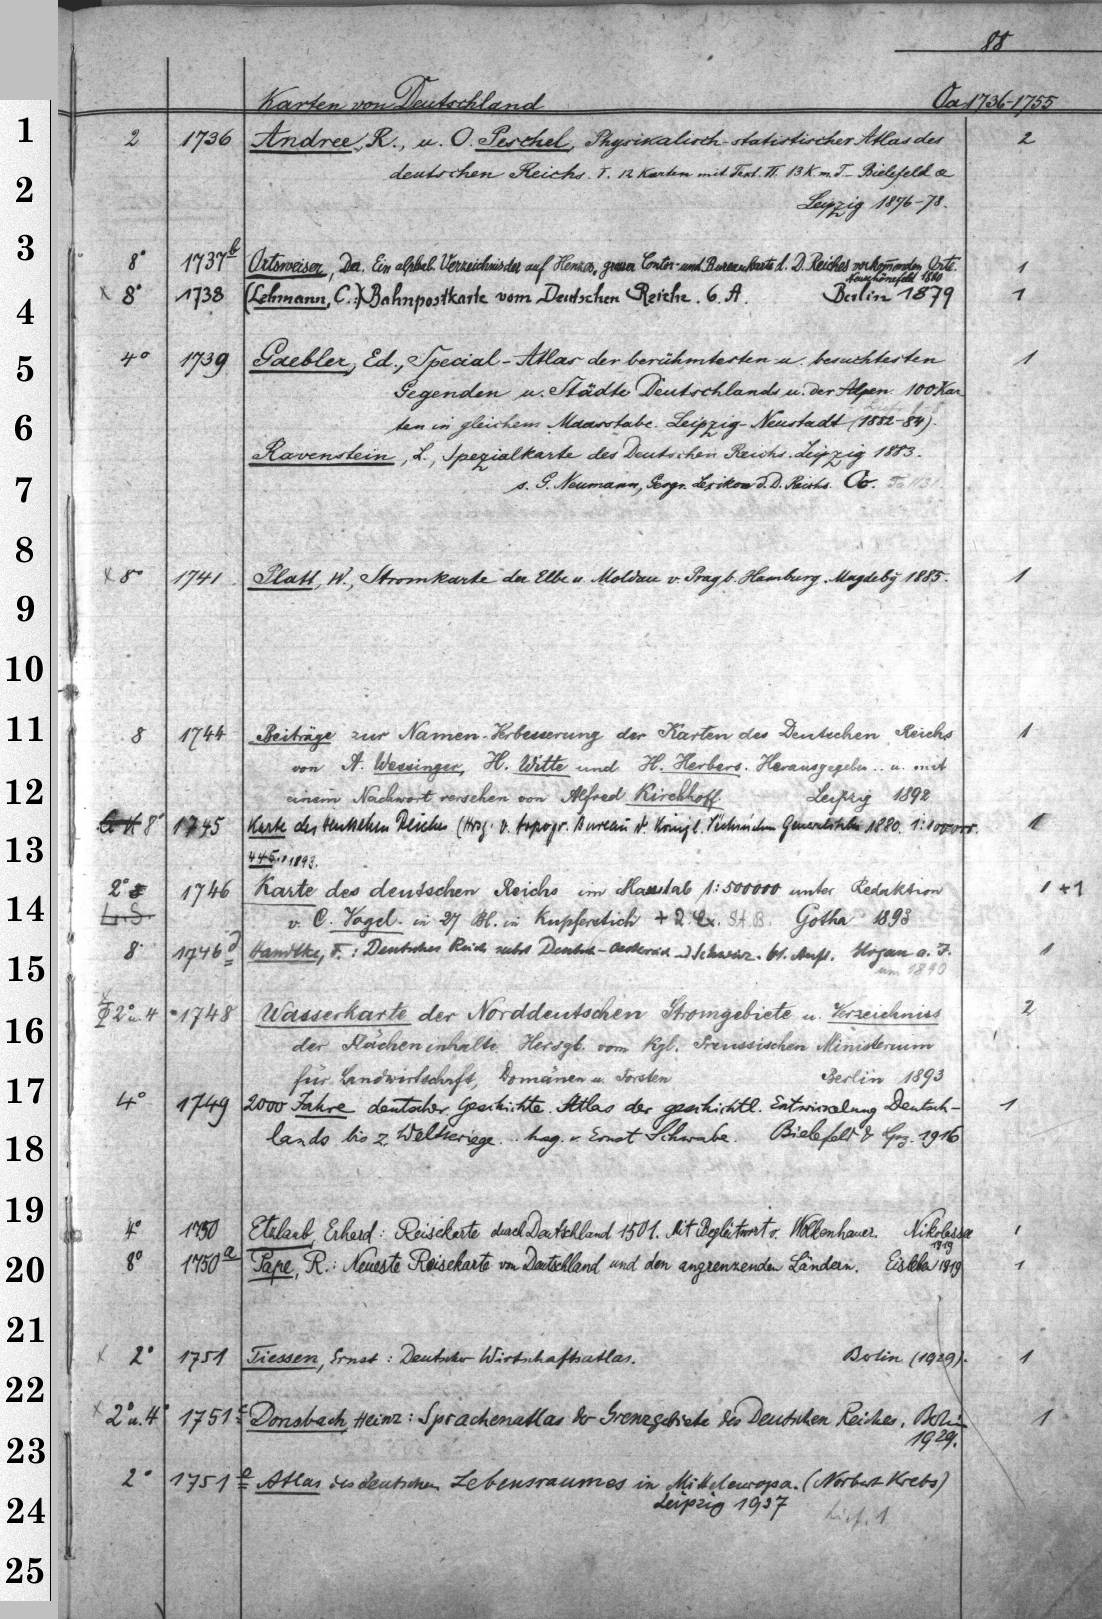 88
Karten von Deutschland Oa 1736-1755
1
2 1736 Andree, R., u. O. Peschel, Physikalisch-statistischer Atlas des 2
2
deutschen Reichs. I. 12 Karten mit Text. II. 13 K. m. T. Bielefeld &
Leipzig 1876-78.
3
8° 1737b Ortsweiser, Der. Ein alphab. Verzeichnis der auf Grosser Contor- und Bureaukarte d. D. Reiches vorkom̄enden Orte. 1
1880
x 8° 1738 (Lehmann, C.:) Bahnpostkarte vom Deutschen Reiche. 6. A. Berlin 1879 1
4
5
4° 1739 Gaebler, Ed., Special-Atlas der berühmtesten u. besuchtesten 1
Gegenden u. Städte Deutschlands u. der Alpen. 100 Kar
6
ten in gleichem Maasstabe. Leipzig-Neustadt (1882-84).
Ravenstein, L., Spezialkarte des Deutschen Reichs. Leipzig 1883.
7
s. G. Neumann, Geogr. Lexikon d. D. Reichs.
8
x 8° 1741 Platt, W., Stromkarte der Elbe u. Moldau v. Prag b. Hamburg. Magdebg 1885. 1
9
10
11
8 1744 Beiträge zur Namen-Verbesserung der Karten des Deutschen Reichs 1
von A. Wessinger, H. Witte und H. Herbers. Herausgegeben .. u. mit
12
einem Nachwort versehen von Alfred Kirchhoff. Leipzig 1892
8° 1745 Karte des deutschen Reiches (Hrsg. v. topogr. Bureau d. Königl. Sächsischen Generalstabs 1880. 1:100000. 1
13
445. 1893.
2° 1746 Karte des deutschen Reichs im Maastab 1:500000 unter Redaktion 1 +1
14
L.S. v. C. Vogel. in 27 Bl. in Kupferstich + 2. Ex. St. B. Gotha 1893
8° 1746d Handtke, F.: Deutsches Reich nebst Deutsch-Oesterreich u. Schweiz. 61. Aufl. Glogau o. J. 1
15
um 1890
2° u. 4 1748 Wasserkarte der Norddeutschen Stromgebiete u. Verzeichniss 2
16
der Flächeninhalte. Hersgb. vom Kgl. Preussischen Ministerium
für Landwirtschaft, Domänen u. Forsten Berlin 1893
17
4° 1749 2000 Jahre deutscher Geschichte. Atlas der geschichtl. Entwickelung Deutsch- 1
18
lands bis z. Weltkriege... hsg. v. Ernst Schwabe. Bielefeld & Lpz. 1916
19
4° 1750 Etzlaub, Erhard: Reisekarte durch Deutschland 1501. Mit Begleitwort v. Wolkenhauer. Nikolassee 1
1919
20
8° 1750a Pape, R.: Neueste Reisekarte von Deutschland und den angrenzenden Ländern. Eisleben 1919 1
21
x 2° 1751 Tiessen, Ernst: Deutscher Wirtschaftsatlas. Berlin (1929). 1
22
x 2° u. 4° 1751c Donsbach, Heinz: Sprachenatlas der Grenzgebiete des Deutschen Reiches. Berlin 1
23
1929.
2° 1751e Atlas des deutschen Lebensraumes in Mitteleuropa. (Norbert Krebs)
24
Leipzig 1937 Lief. 1
25